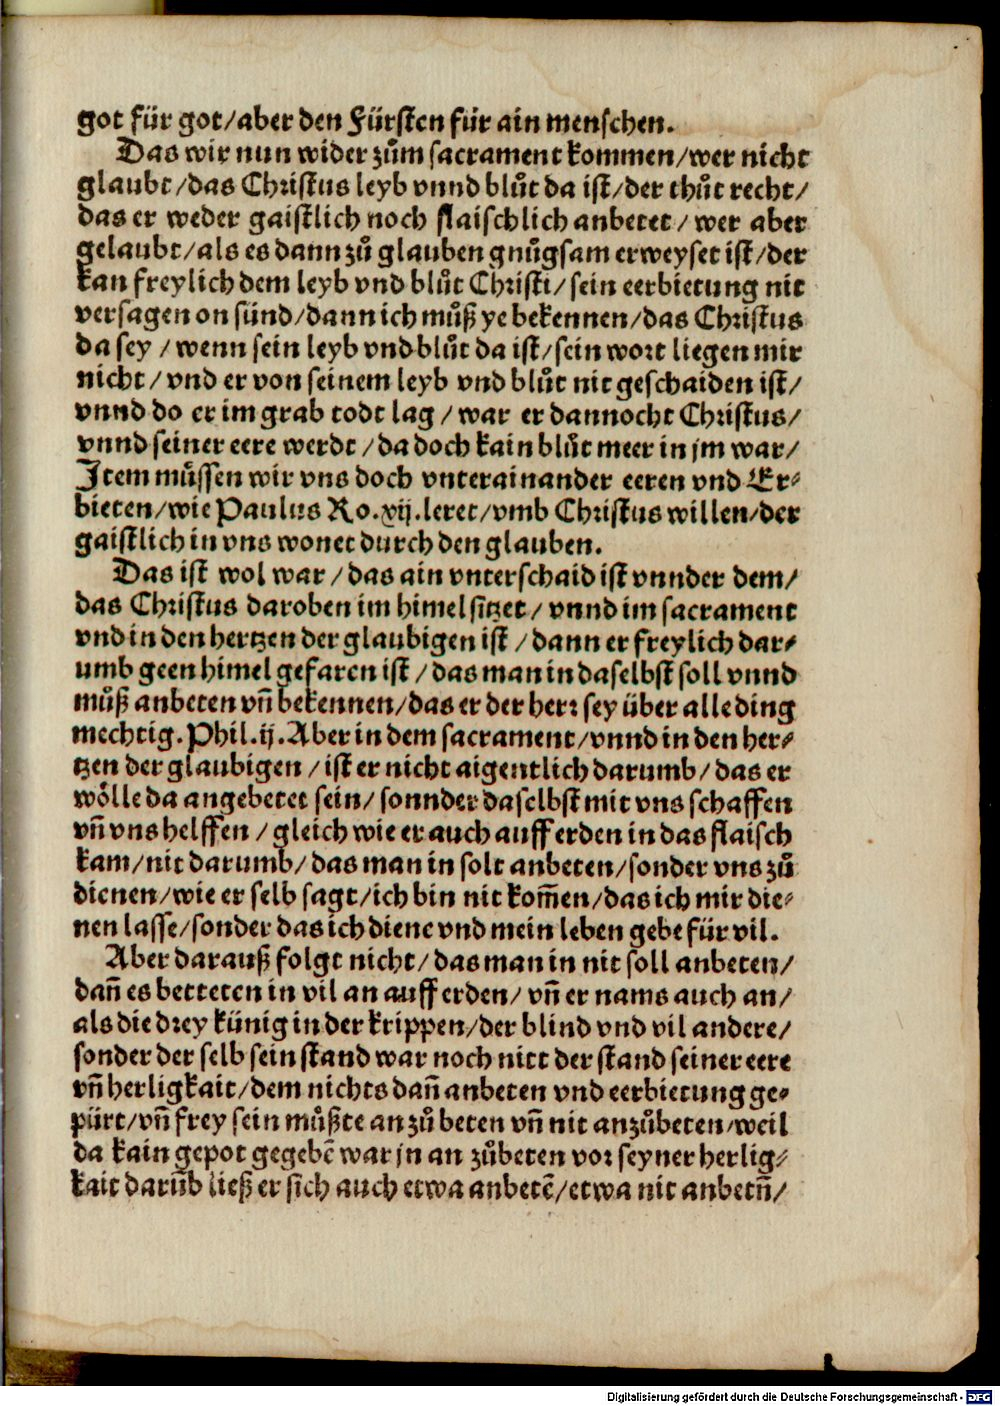 got für got/aber den Fürsten für ain menschen.
Das wir nun wider zům sacrament kommen/wer nicht
glaubt/das Christus leyb vnnd blůt da ist/der thůt recht/
das er weder gaistlich noch flaischlich anbetet/wer aber
gelaubt/als es dann zů glauben gnůgsam erweyset ist/der
kan freylich dem leyb vnd blůt Christi/sein eerbietung nit
versagen on sünd/dann ich můß ye bekennen/das Christus
da sey/wenn sein leyb vnd blůt da ist/sein wort liegen mir
nicht/vnd er von seinem leyb vnd blůt nit geschaiden ist/
vnnd do er im grab todt lag/war er dannocht Christus/
vnnd seiner eere werdt/da doch kain blůt meer in jm war/
Item můssen wir vns doch vnterainander eeren vnd Er⸗
bieten/wie Paulus Ro.xij.leret/vmb Christus willen/der
gaistlich in vns wonet durch den glauben.
Das ist wol war/das ain vnterschaid ist vnnder dem/
das Christus daroben im himel sitzet/vnnd im sacrament
vnd in den hertzen der glaubigen ist/dann er freylich dar⸗
umb geen himel gefaren ist/das man in daselbst soll vnnd
můß anbeten vn̄ bekennen/das er der herr sey über alle ding
mechtig.Phil.ij.Aber in dem sacrament/vnnd in den her⸗
tzen der glaubigen/ist er nicht aigentlich darumb/das er
wölle da angebetet sein/sonnder daselbst mit vns schaffen
vn̄ vns helffen/gleich wie er auch auff erden in das flaisch
kam/nit darumb/das man in solt anbeten/sonder vns zů
dienen/wie er selb sagt/ich bin nit kom̄en/das ich mir die⸗
nen lasse/sonder das ich diene vnd mein leben gebe für vil.
Aber darauß folgt nicht/das man in nit soll anbeten/
dan̄ es betteten in vil an auff erden/vn̄ er nams auch an/
als die drey künig in der krippen/der blind vnd vil andere/
sonder der selb sein stand war noch nitt der stand seiner eere
vn̄ herligkait/dem nichts dan̄ anbeten vnd eerbietung ge⸗
pürt/vn̄ frey sein můßte an zů beten vn̄ nit anzůbeten/weil
da kain gepot gegebē war jn an zůbeten vor seyner herlig⸗
kait darūb ließ er sich auch etwa anbetē/etwa nit anbetn̄/
Digitalisierung gefördert durch die Deutsche Forschungsgemeinschaft - DFG